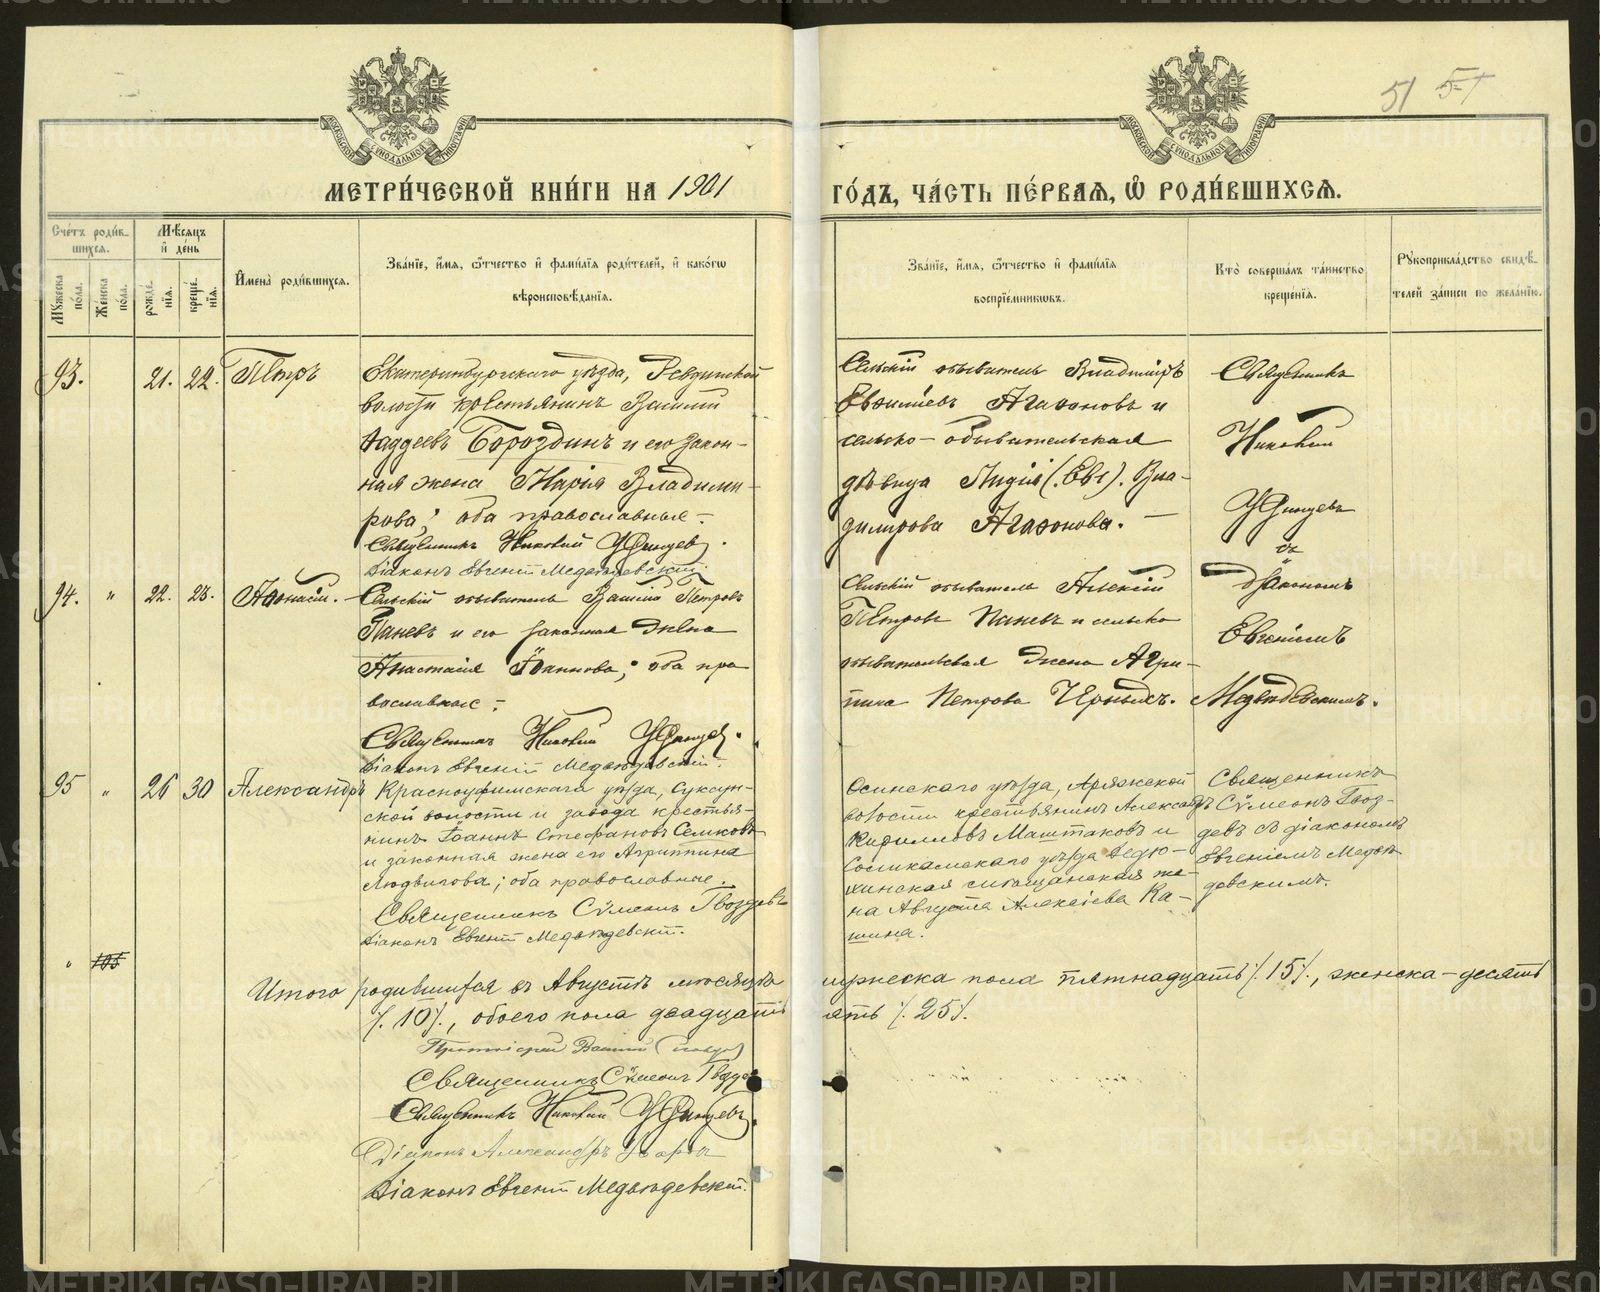 51 51
МЕТРИ́ЧЕСКОЙ КНИ́ГИ НА 1901 ГО́ДЪ, ЧА́СТЬ ПЕ́РВАЯ, Ѡ РОДИ́ВШИХСЯ.
Сче́тъ роди́в-
шихся.
Му́жеска по́ла.
Же́нска по́ла.
Мѣ́сяцъ
и де́нь
рожде́нія.
креще́нія.
Имена̀ роди́вшихся.
Зва́ніе, и́мя, ѻ́тчество и фами́лія роди́телей, и како́гѡ
вѣроисповѣ́данія.
Зва́ніе, и́мя, ѻ́тчество и фами́лія
воспріе́мниковъ.
Кто̀ соверша́лъ та́инство
креще́нія.
Рукоприкла́дство свидѣ́-
телей за́писи по жела́нію.
93. 21. 22. Петръ
Екатеринбургскаго уѣзда, Ревдинской
волости крестьянинъ Василій
Ѳаддеевъ Бороздинъ и его закон-
ная жена Марія Владими-
рова; оба православные.
Священникъ Никовий Удинцевъ.
Діаконъ Евгеній Медвѣдевскій.
Сельскій обыватель Владиміръ
Агафоновъ и
сельско-обывательская
дѣвица Лидія (Евг.) Вла-
димирова Агафонова.
Священникъ
Никовий
Удинцевъ
съ
діакономъ
Евгеніемъ
Медвѣдевскимъ.
94. " 22. 23. Аѳанасій.
Сельскій обыватель Василій Петровъ
Паневъ и его законная жена
Анастасія Іоаннова; оба пра-
вославные.
Священникъ Никовий Удинцевъ.
Діаконъ Евгеній Медвѣдевскій.
Сельскій обыватель Алексій
Петровъ Паневъ и сельско
обывательская жена Агри-
пина Петрова Черныхъ.
95 " 26 30 Александръ
Красноуфимскаго уѣзда, Суксун-
ской волости и завода крестья-
нинъ Іоаннъ Стефановъ Семковъ
и законная жена его Агриппина
Людвигова; оба православные.
Священникъ Сѵмеонъ Гвоздевъ
Діаконъ Евгеній Медвѣдевскій.
Осинскаго уѣзда, Аряжской
волости крестьянинъ Александръ
Кирилловъ Маштаковъ и
Соликамскаго уѣзда Дедю-
хинская мѣщанская же-
на Августа Алексіева Ка-
шина.
Священникъ
Сѵмеонъ Гвоз-
девъ съ діакономъ
Евгеніемъ Медвѣ-
девскимъ.
" 105
Итого родившихся въ Августѣ мѣсяцѣ мужеска пола пятнадцать /.15/., женска-десять
/.10/., обоего пола двадцать пять /.25/.
Протоіерей Василій
Священникъ Сѵмеонъ Гвоздевъ
Священникъ Никовий Удинцевъ.
Діаконъ Александръ
Діаконъ Евгеній Медвѣдевскій.
METRIKI.GASO-URAL.RU